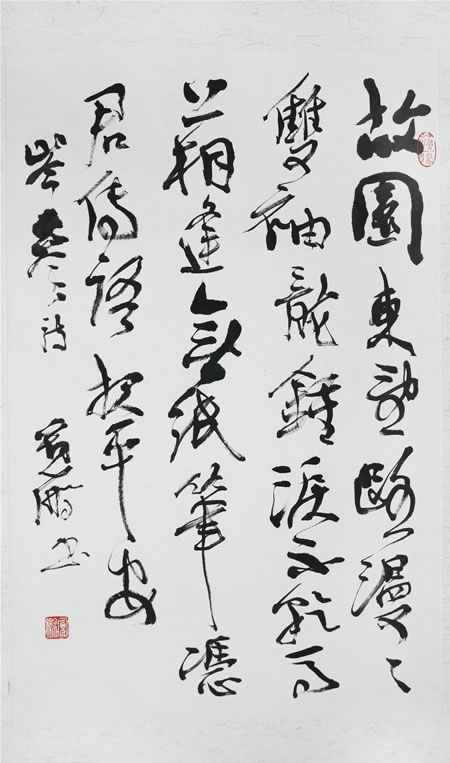 故園東望路漫〻
雙袖龍鍾淚不乾馬
上相逢無紙筆憑
君傳語報平安
岑參詩
鵬书